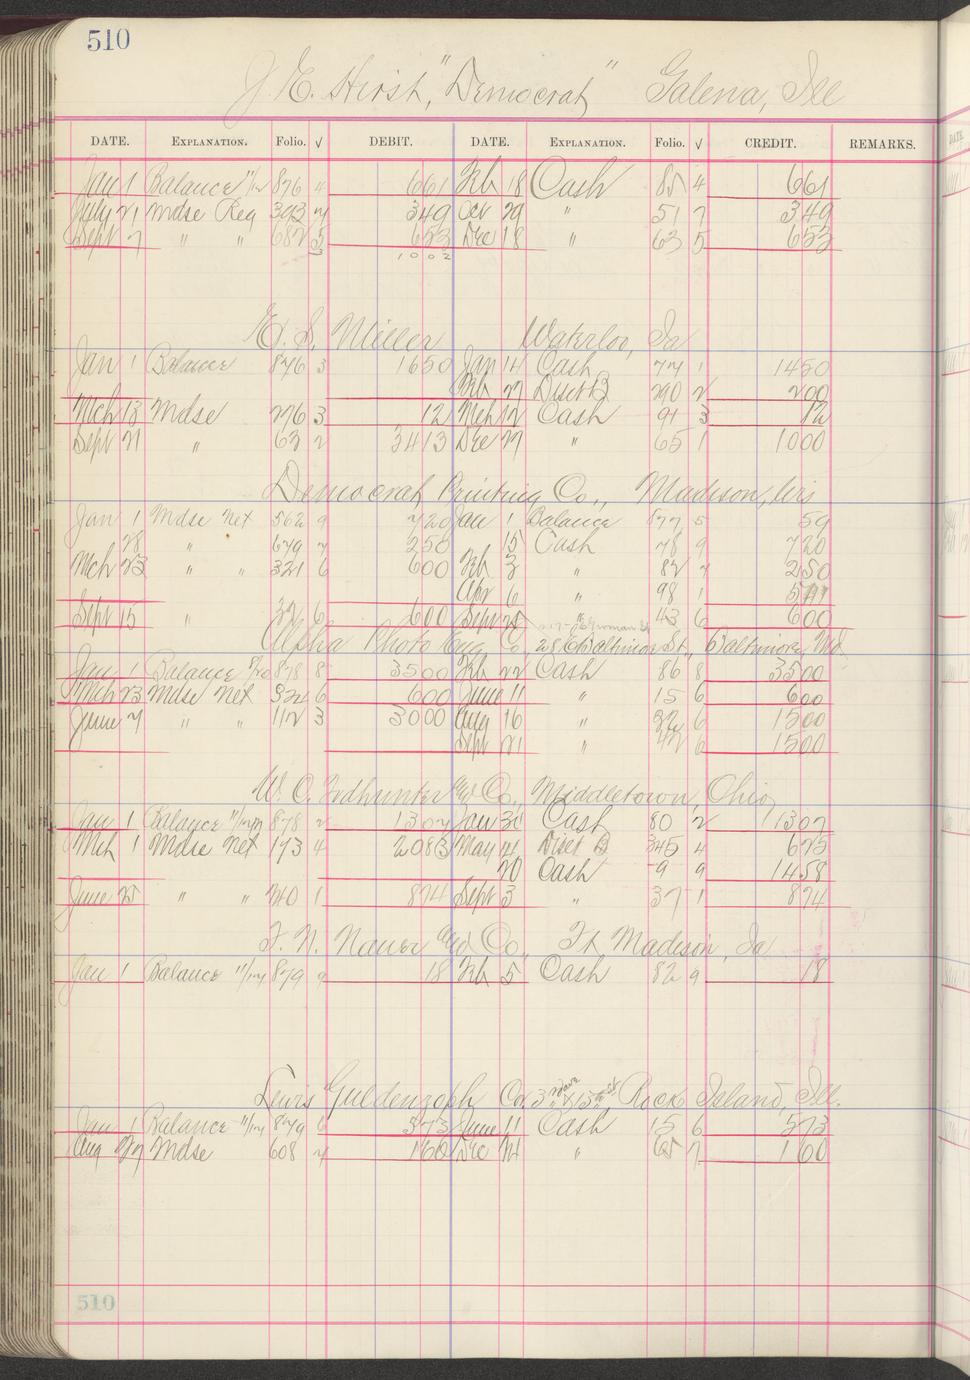 510
J. E. Hirst, "Democrat" Galena, Ill
DATE. EXPLANATION. Folio. √ DEBIT. DATE. EXPLANATION. Folio. √ CREDIT. REMARKS.
Jan 1 Balance 876 4 661 Feb 18 Cash 85 4 661
July 21 Mdse Reg 393 7 349 Oct 29 " 51 7 349
Sept 7 " " 682 5 653 Dec 18 " 63 5 653
1002
E. S. Miller Waterloo, Ia
Jan 1 Balance 876 3 1650 Jan 14 Cash 77 1 1450
Feb 27 Disct B 290 2 200
Mch 13 Mdse 276 3 12 Mch 12 Cash 91 3 12
Sept 21 " 63 2 3413 Dec 27 " 65 1 1000
Democrat Printing Co., Madison, Wis
Jan 1 Mdse Net 562 9 720 Jan 1 Balance 877 5 59
28 " 679 7 250 15 Cash 78 9 720
Mch 23 " " 321 6 600 Feb 3 " 82 7 250
Apr 6 " 98 1
Sept 15 " 32 6 600 Sept 25 " 43 6 600
Alpha Photo Eng. Co., 28 E Baltimore St., Baltimore, Md
Jan 1 Balance 878 8 3500 Feb 22 Cash 86 8 3500
Mch 23 Mdse Net 322 6 600 June 11 " 15 6 600
June 7 " " 112 3 3000 Aug 16 " 32 6 1500
Sept 21 " 42 6 1500
W. C. Todhunter and Co., Middletown, Ohio
Jan 1 Balance 878 2 1307 Jan 31 Cash 80 2 1307
Mch 1 Mdse Net 173 4 2083 May 4 Disct B 345 4 625
20 Cash 9 9 1458
June 25 " " 240 1 874 Sept 3 " 37 1 874
F. N. Nauer and Co., Ft Madison, Ia
Jan 1 Balance 11/14 879 9 18 Feb 5 Cash 82 9 18
Lewis Guldenzoph Co. Rock Island, Ill.
Jan 1 Balance 11/14 879 6 573 June 11 Cash 15 6 573
Aug 27 Mdse 608 7 160 Dec 24 " 65 7 160
510